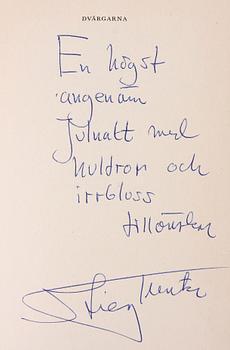 DVÄRGARNA
En högst
angenäm
Julnatt med
huldror och
irrbloss
tillönskar
Stieg Trenter